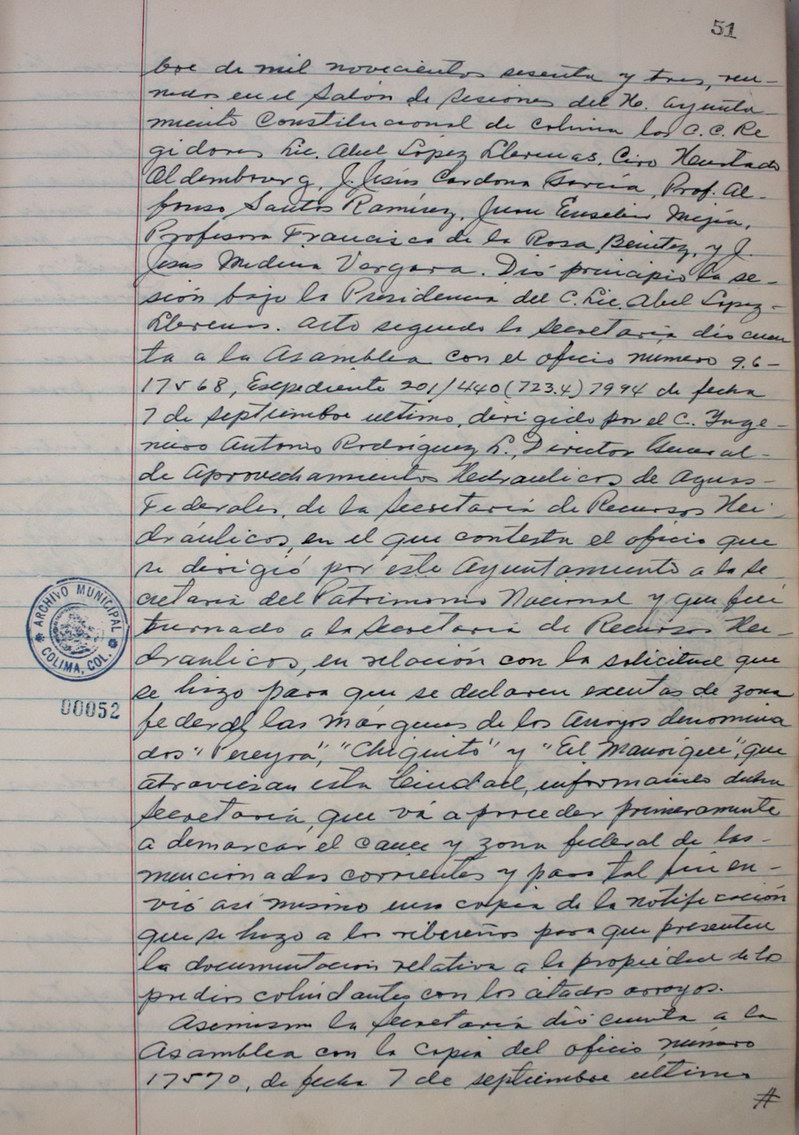 51
bre de mil novecientos sesenta y tres, reu-
nidos en el Salón de Sesiones del H. Ayunta
miento Constitucional de Colima los C.C. Re
gidores Lic. Abel López Llerenas, Ciro Hurtado
Aldembourg, J. Jesús Cardona García, Prof. Al-
fonso Santos Ramírez, Juan Eusebio Mejía,
Profesora Francisca de la Rosa Benitez, y J.
Jesus Medina Vergara. Dió principio la se-
sión bajo la Presidencia del C. Lic. Abel Lopez-
Llerenas. Acto seguido la Secretaría dió cuen
ta a la Asamblea con el oficio numero 9.6-
17568, Expediente 201/440(723.4)7994 de fecha
7 de septiembre ultimo, dirigido por el C. Inge-
niero Antonio Rodríguez L., Director General-
de Aprovechamientos Hidraulicos de Aguas-
Federales, de la Secretaría de Recursos Hi-
dráulicos, en el que contesta el oficio que
se dirigió por este Ayuntamiento a la Se
cretaria del Patrimonio Nacional y que fué
turnado a la Secretaría de Recursos Hi-
draulicos, en relación con la solicitud que
se hizo para que se declaren exentas de zona
federal las márgenes de los Arroyos denomina
dos "Pereyra", "Chiquito" y "El Manrique", que
atraviesan esta Ciudad, informando dicha
Secretaría, que vá a proceder primeramente
a demarcar el cauce y zona federal de las-
mencionadas corrientes y para tal fin en-
vió asi mismo una copia de la notificación
que se hizo a los ribereños para que presenten
la documentación relativa a la propiedad de los
predios colindantes con los citados arroyos.
Asimismo la Secretaría dió cuenta a la
Asamblea con la copia del oficio número
17570, de fecha 7 de septiembre ultimo
#
ARCHIVO MUNICIPAL
COLIMA, COL.
00052